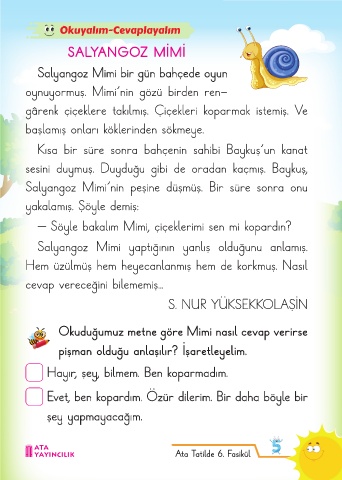 Okuyalım-Cevaplayalım
SALYANGOZ MİMİ
Salyangoz Mimi bir gün bahçede oyun
oynuyormuş. Mimi'nin gözü birden ren-
gârenk çiçeklere takılmış. Çiçekleri koparmak istemiş. Ve
başlamış onları köklerinden sökmeye.
Kısa bir süre sonra bahçenin sahibi Baykuş'un kanat
sesini duymuş. Duyduğu gibi de oradan kaçmış. Baykuş,
Salyangoz Mimi'nin peşine düşmüş. Bir süre sonra onu
yakalamış. Şöyle demiş:
– Söyle bakalım Mimi, çiçeklerimi sen mi kopardın?
Salyangoz Mimi yaptığının yanlış olduğunu anlamış.
Hem üzülmüş hem heyecanlanmış hem de korkmuş. Nasıl
cevap vereceğini bilememiş...
S. NUR YÜKSEKKOLAŞİN
Okuduğumuz metne göre Mimi nasıl cevap verirse
pişman olduğu anlaşılır? İşaretleyelim.
Hayır, şey, bilmem. Ben koparmadım.
Evet, ben kopardım. Özür dilerim. Bir daha böyle bir
şey yapmayacağım.
ATA
YAYINCILIK
Ata Tatilde 6. Fasikül
5